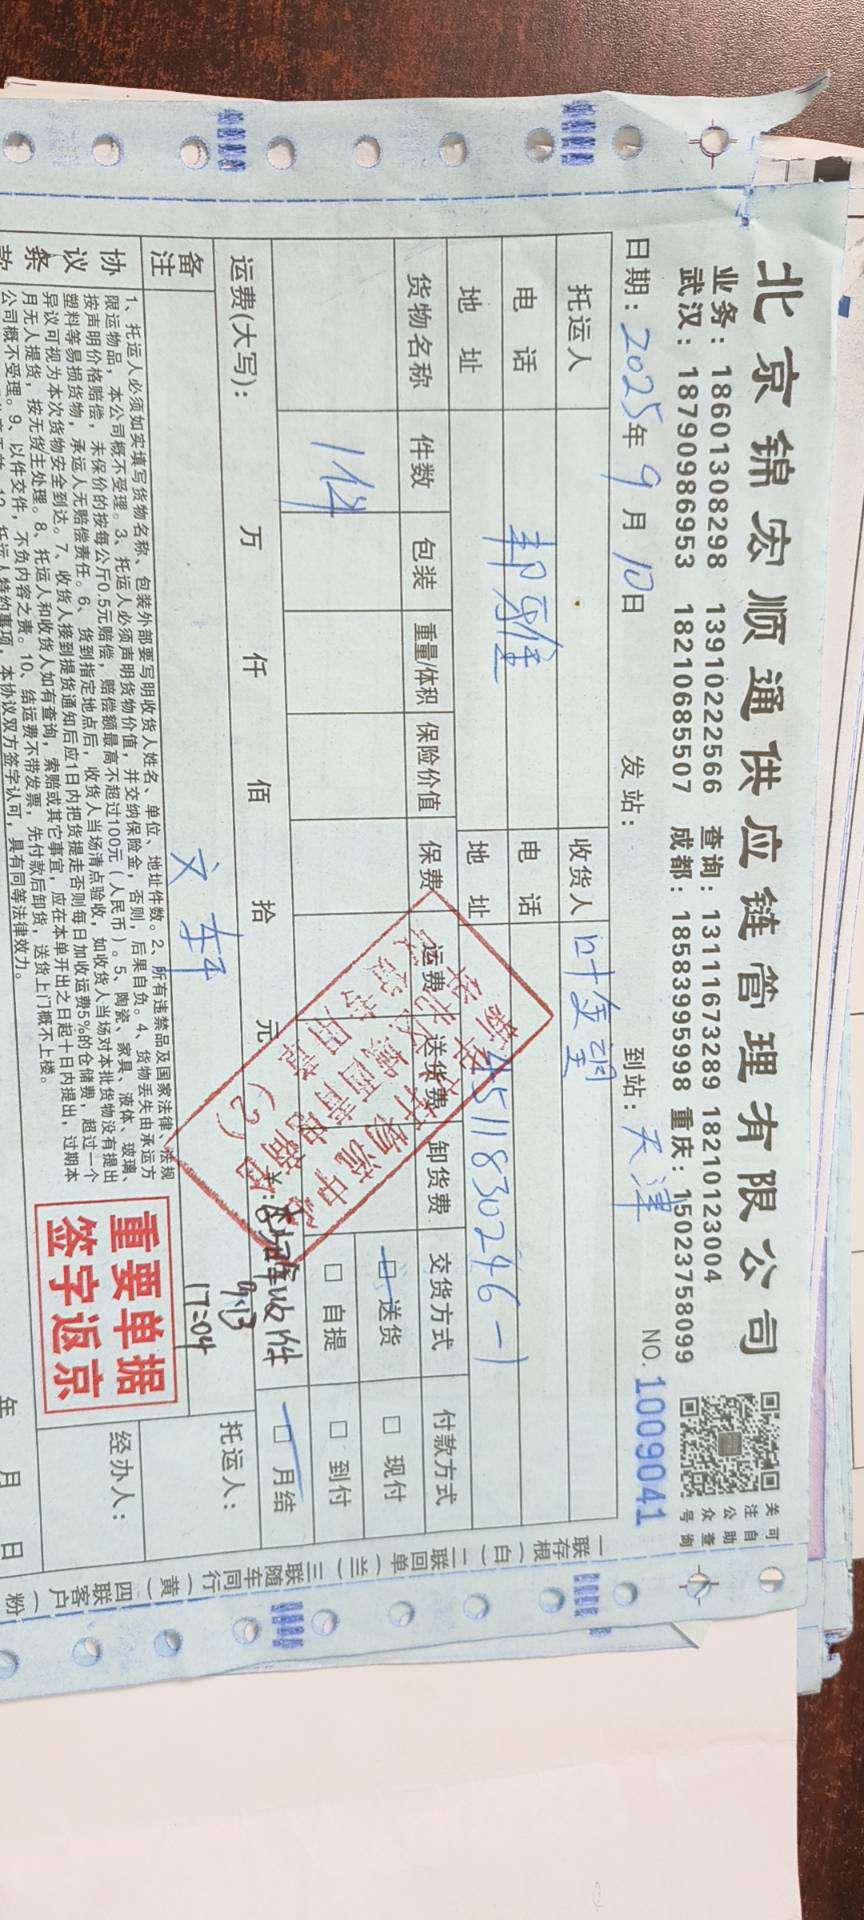 北京锦宏顺通供应链管理有限公司
业务：18601308298 13910222566 查询：13111673289 18210123004
武汉：18790986953 18210685507 成都：18583995998 重庆：15023758099
关注公众号
可自助查询
日期：2025年9月10日 发站： 到站：天津 NO.1009041
托运人 收货人 叶金翌
电话 电话
地址 地址 4511830246-1
货物名称 件数 包装 重量/体积 保险价值 保费 运费 送货费 卸货费 交货方式 付款方式
1件 □送货 □现付
□自提 □到付
运费(大写)： 万 仟 佰 拾 元 ¥: □月结
9.13
17:04
备注 托运人：
经办人：
重要单据
签字返京
协议条款
1、托运人必须如实填写货物名称、包装外部要写明收货人姓名、单位、地址件数。2、所有违禁品及国家法律、法规
限运物品，本公司概不受理。3、托运人必须声明货物价值，并交纳保险金，否则，后果自负。4、货物丢失由承运方
按声明价格赔偿，未保价的按每公斤0.5元赔偿，赔偿额最高不超过100元（人民币）。5、陶瓷、家具、液体、玻璃、
塑料等易损货物，承运人无赔偿责任。6、货到指定地点后，收货人当场清点验收，如收货人当场对本批货物没有提出
异议可视为本次货物安全到达。7、收货人接到提货通知后应1日内把货提走否则每日加收运费5%的仓储费，超过一个
月无人提货，按无货主处理。8、托运人和收货人如有查询，索赔或其它事宜，应在本单开出之日起十日内提出，过期本
公司概不受理。9、以件交件，不负内容之责。10、结运费不带发票，先付款后卸货，送货上门概不上楼。
托运人特约事项，本协议双方签字认可，具有同等法律效力。
年 月 日
一联存根（白）二联回单（兰）三联随车同行（黄）四联客户（粉